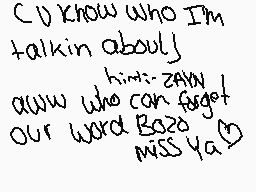 (U know who I'm
talkin about)
hint:- ZAYN
aww who can forget
our word Bozo
miss ya